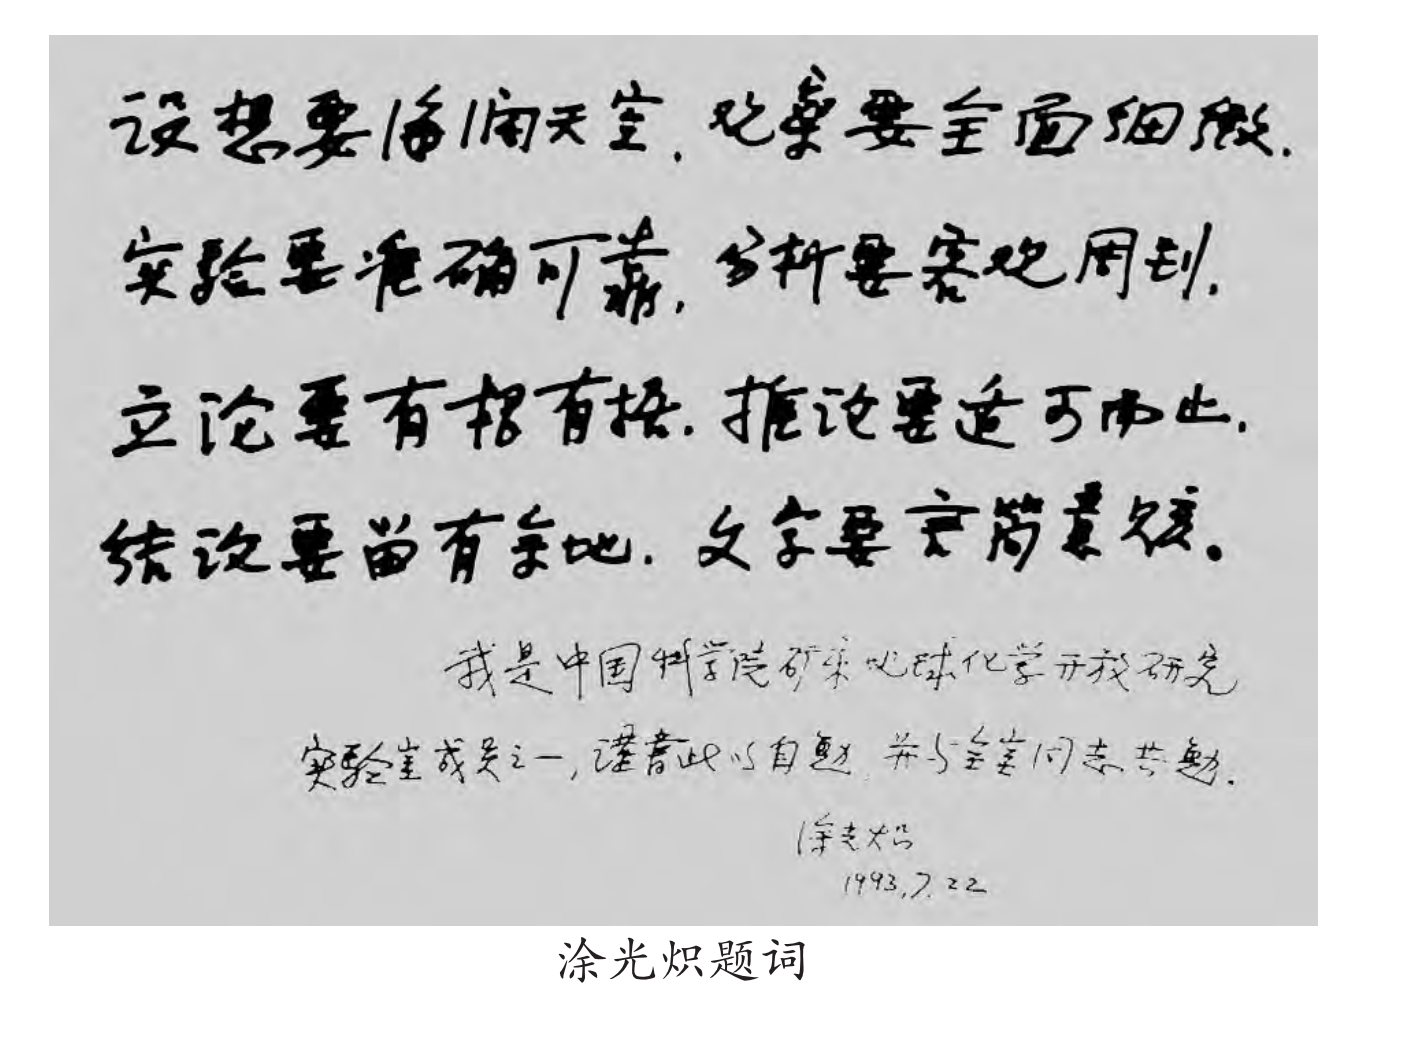 设想要海阔天空，观察要全面细微．
实验要准确可靠，分析要客观周到．
立论要有根有据．推论要适可而止．
结论要留有余地．文字要言简意赅。
我是中国科学院矿床地球化学开放研究
实验室成员之一，谨书此以自勉 并与全室同志共勉．
涂光炽
1993.7.22
涂光炽题词